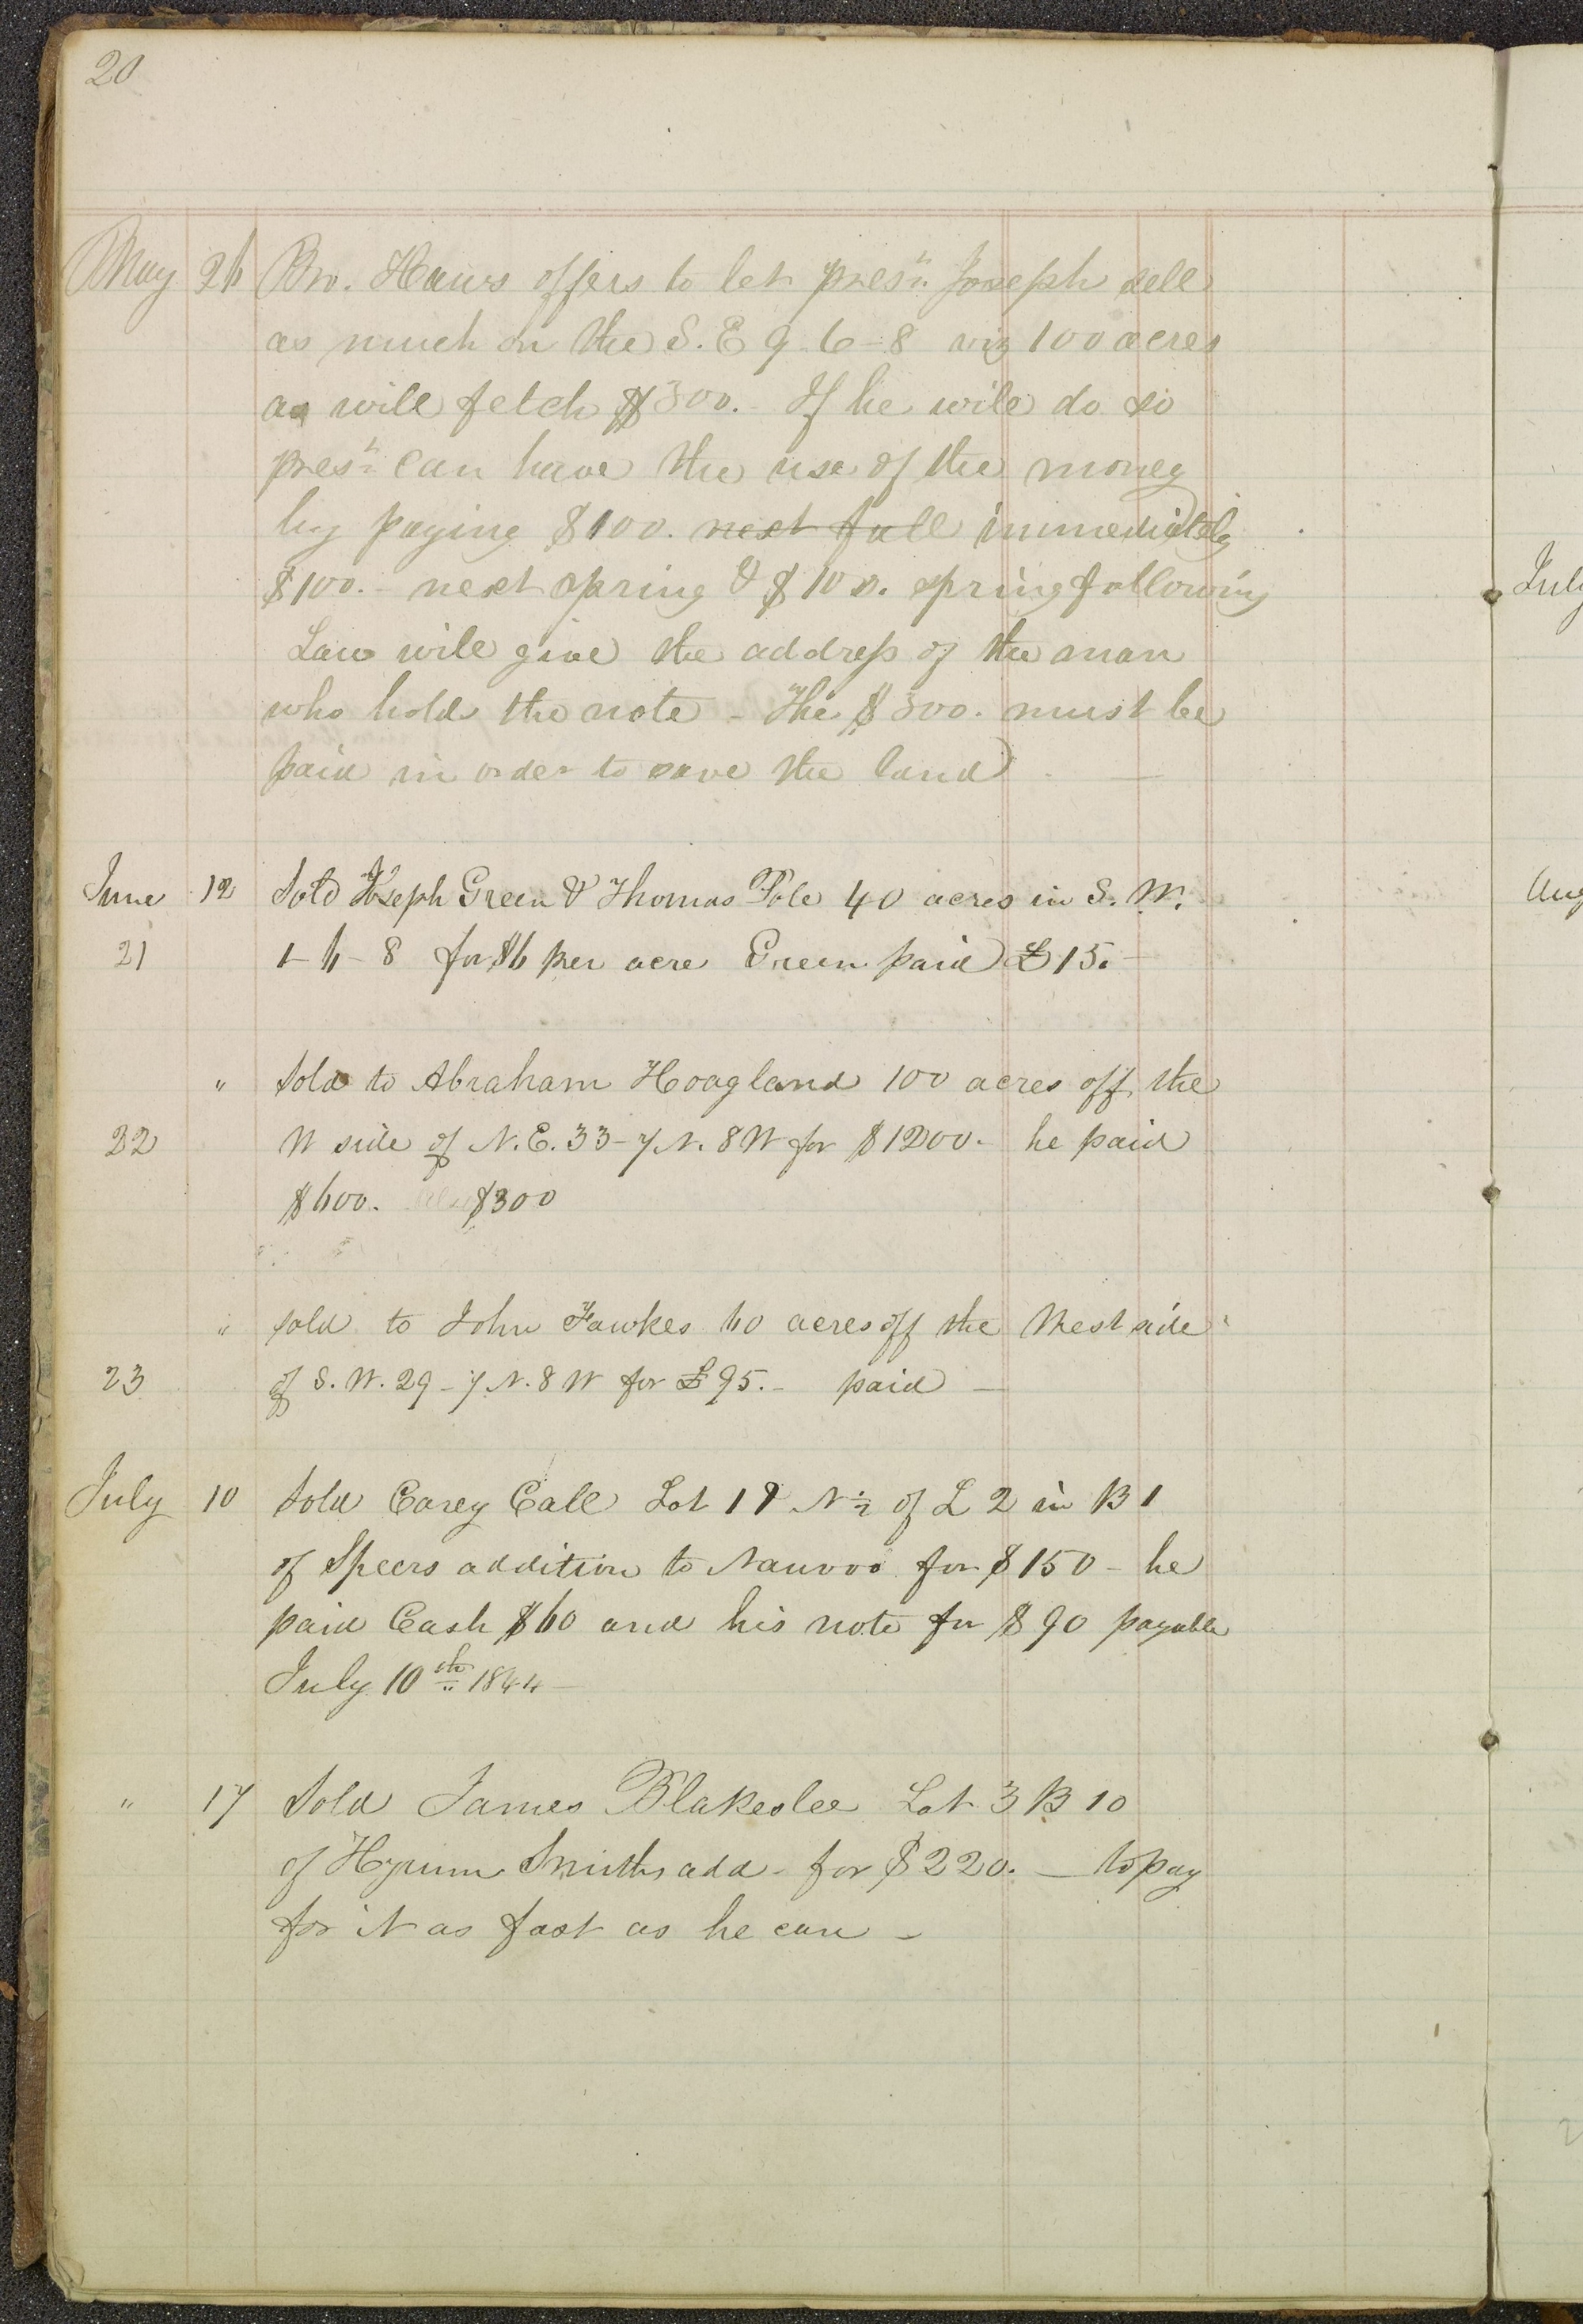 20
May 26 Bro. Haws offers to let pres^t. Joseph sell
as much on the S. E 9 6-8 viz 100 acres
as will fetch $300.- If he will do so
pres^t can have the use of the money
by paying $100. next fall immediately
$100.- next spring & $100. spring following
Law will give the address of the man
who holds the note - The $300. must be
paid in order to save the land -
June 12 Sold Joseph Green & Thomas Pole 40 acres in S. W.
21 1-6-8 for $6 per acre Green paid £15.-
" Sold to Abraham Hoagland 100 acres off the
22 W side of N. E. 33-7 N. 8 W for $1200.- he paid
$600. also $300
" sold to John Fawkes 60 acres off the West side
23 of S. W. 29-7 N. 8 W for £95.- paid -
July 10 Sold Carey Call Lot 1 & N ½ of L 2 in B 1
of Speers addition to Nauvoo for $150 - he
paid Cash $60 and his note for $90 payable
July 10th 1844 -
" 17 Sold James Blakeslee Lot 3 B 10
of Hyrum Smiths add- for $220. - to pay
for it as fast as he can -
July
Aug